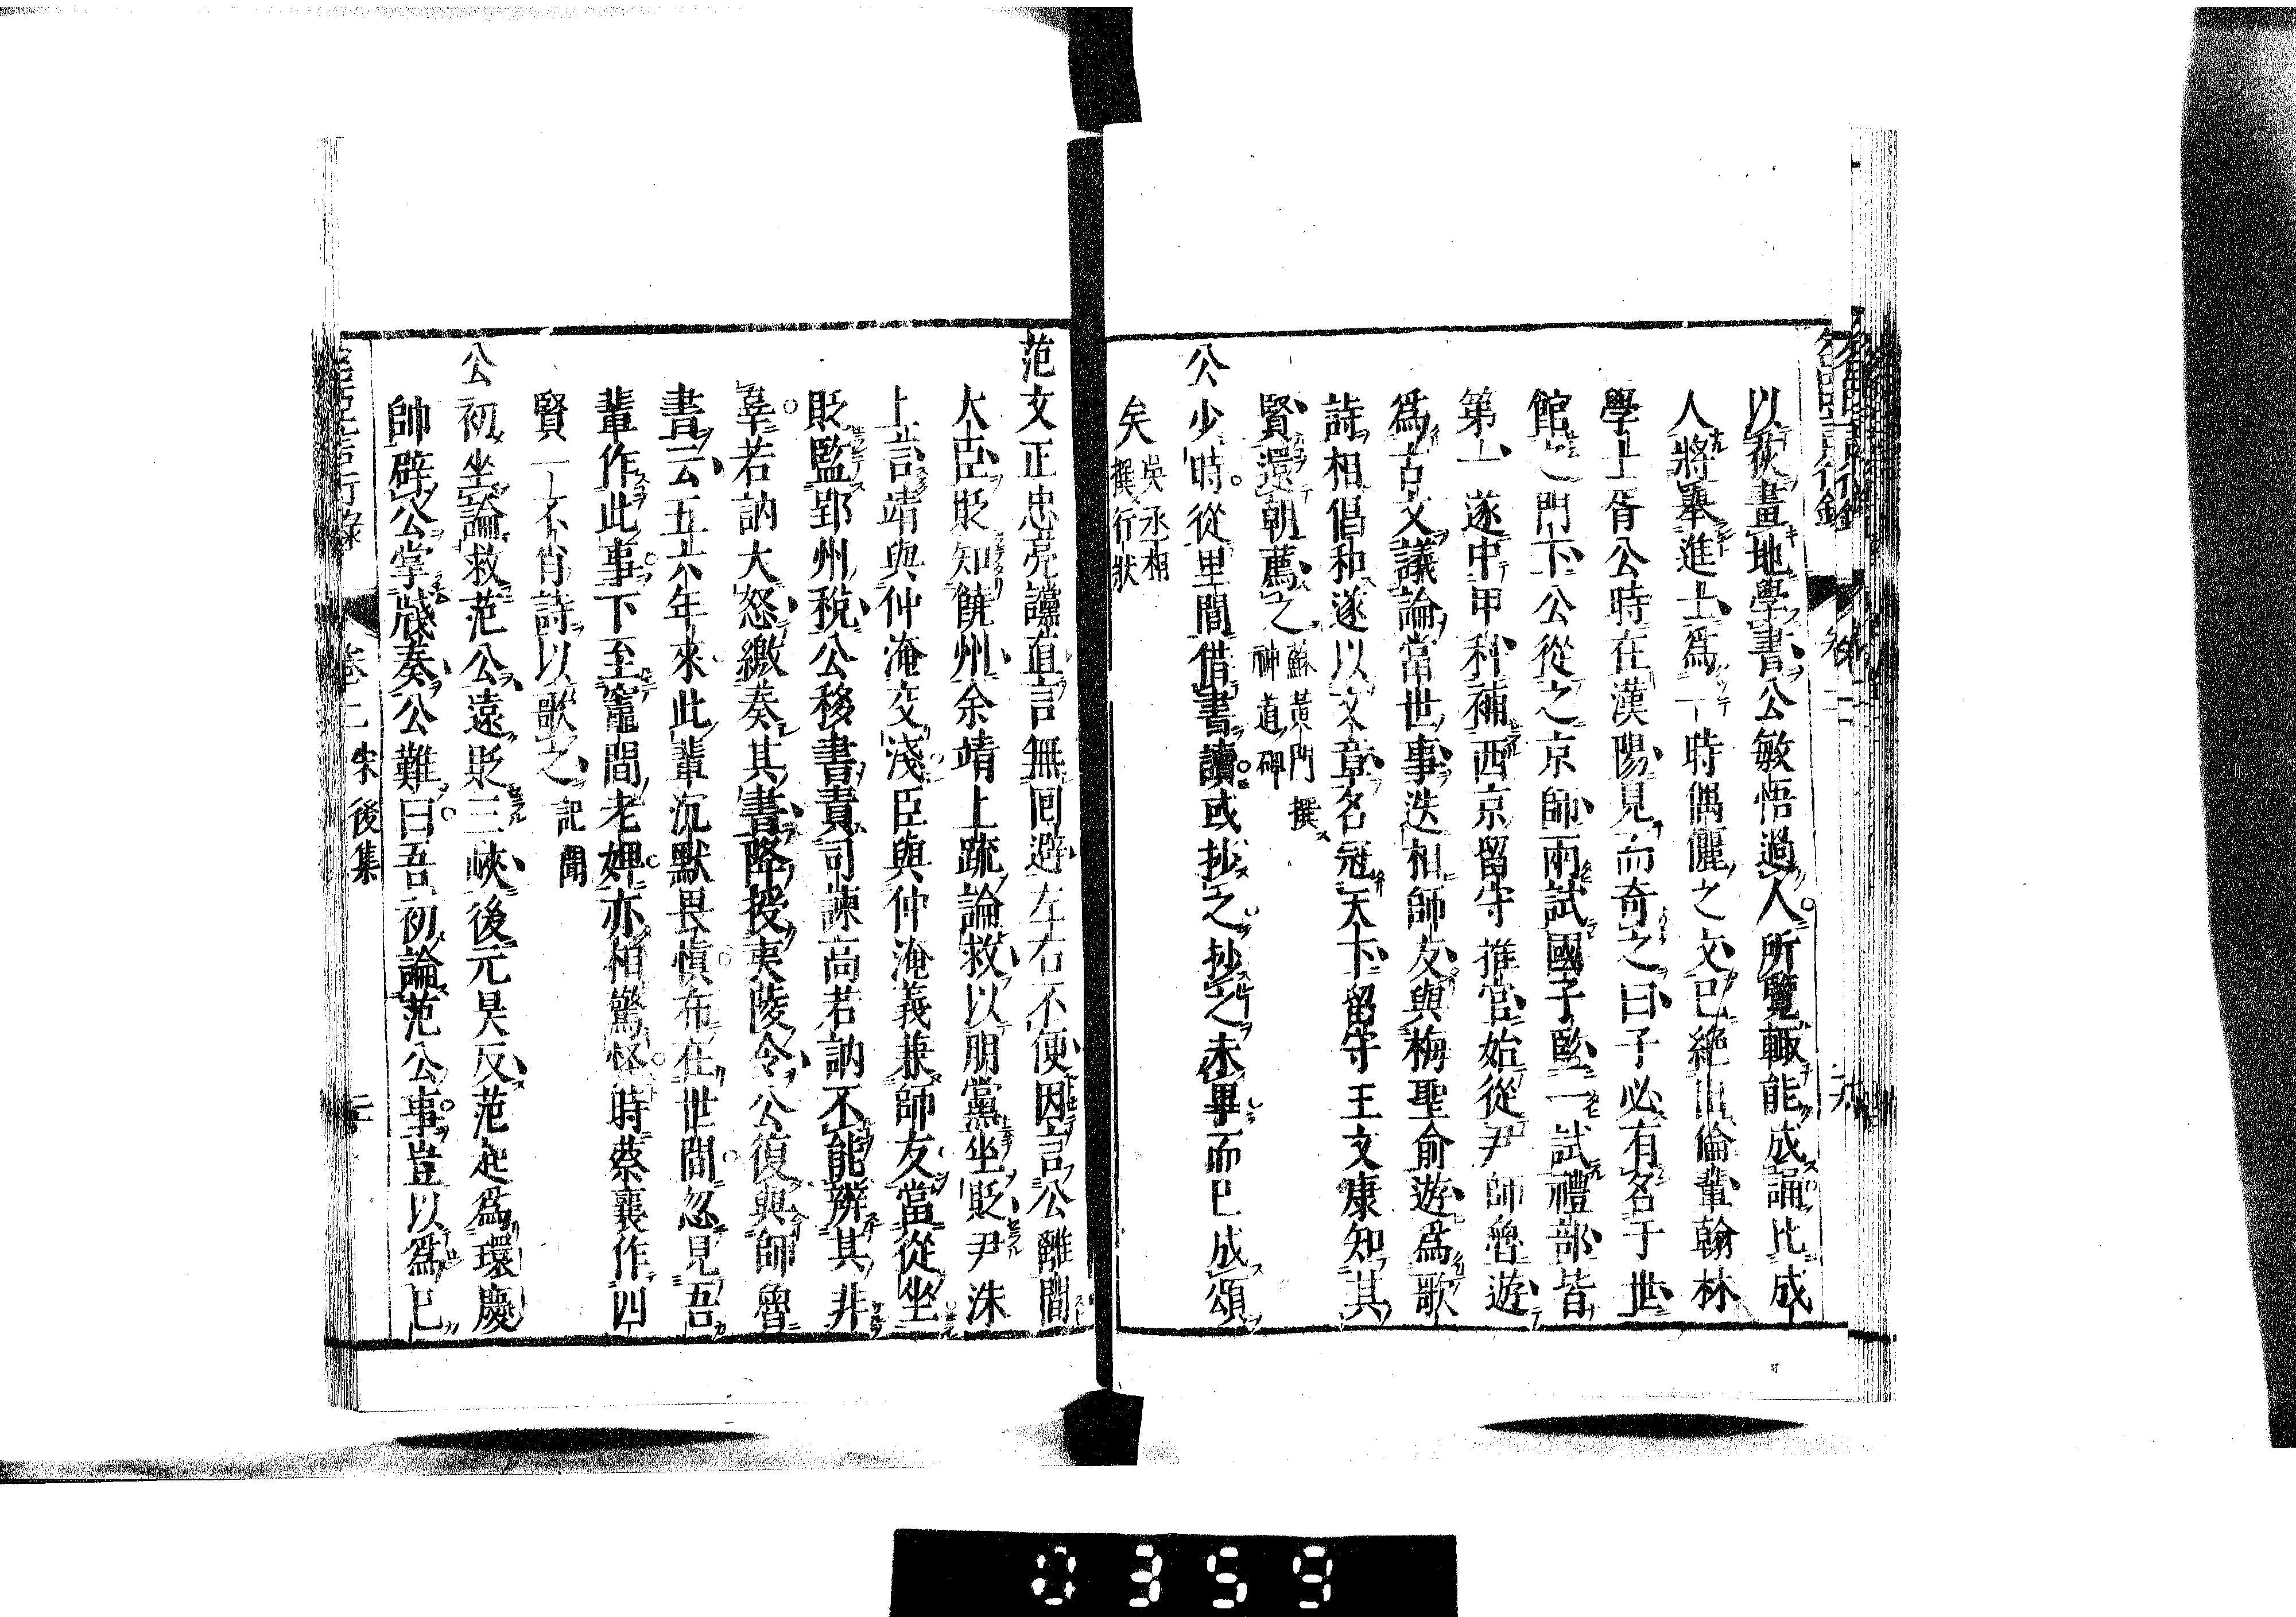 以荻畫地學書公敏悟過人所覽輙能成誦比成
人將舉進士爲一時偶儷之文已絶出倫輩翰林
學士胥公時在漢陽見而奇之曰子必有名于世
館之門下公從之京師兩試國子監一試禮部皆
第一遂中甲科補西京留守推官始從尹師魯遊
爲古文議論當世事迭相師友與梅聖俞遊爲歌
詩相倡和遂以文章名冠天下留守王文康知其
賢還朝薦之 蘇黃門撰
神道碑
公少時從里閭借書讀或抄之抄之未畢而已成誦
矣 吳丞相
撰行狀
范文正忠亮讜直言無回避左右不便因言公離間
大臣貶知饒州余靖上疏論救以朋黨坐貶尹洙
上言靖與仲淹交淺臣與仲淹義兼師友當從坐
貶監郢州稅公移書責司諫高若訥不能辨其非
辜若訥大怒繳奏其書降授夷陵令公復與師魯
書云五六年來此輩沉默畏慎布在世間忽見吾
輩作此事下至竈間老婢亦相驚怪時蔡襄作四
賢一不肖詩以歌之 記聞
公初坐論救范公遠貶三峽後元昊反范起爲環慶
帥辟公掌牋奏公難曰吾初論范公事豈以爲已
卷二 宋後集